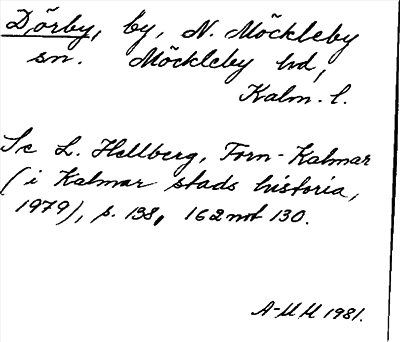 Dörby, by, N. Möckleby
sn. Möckleby hd,
Kalm. l.
Se L. Hellberg, Forn-Kalmar
(i Kalmar stads historia,
1979), s. 138, 162 not 130.
A-M H 1981.